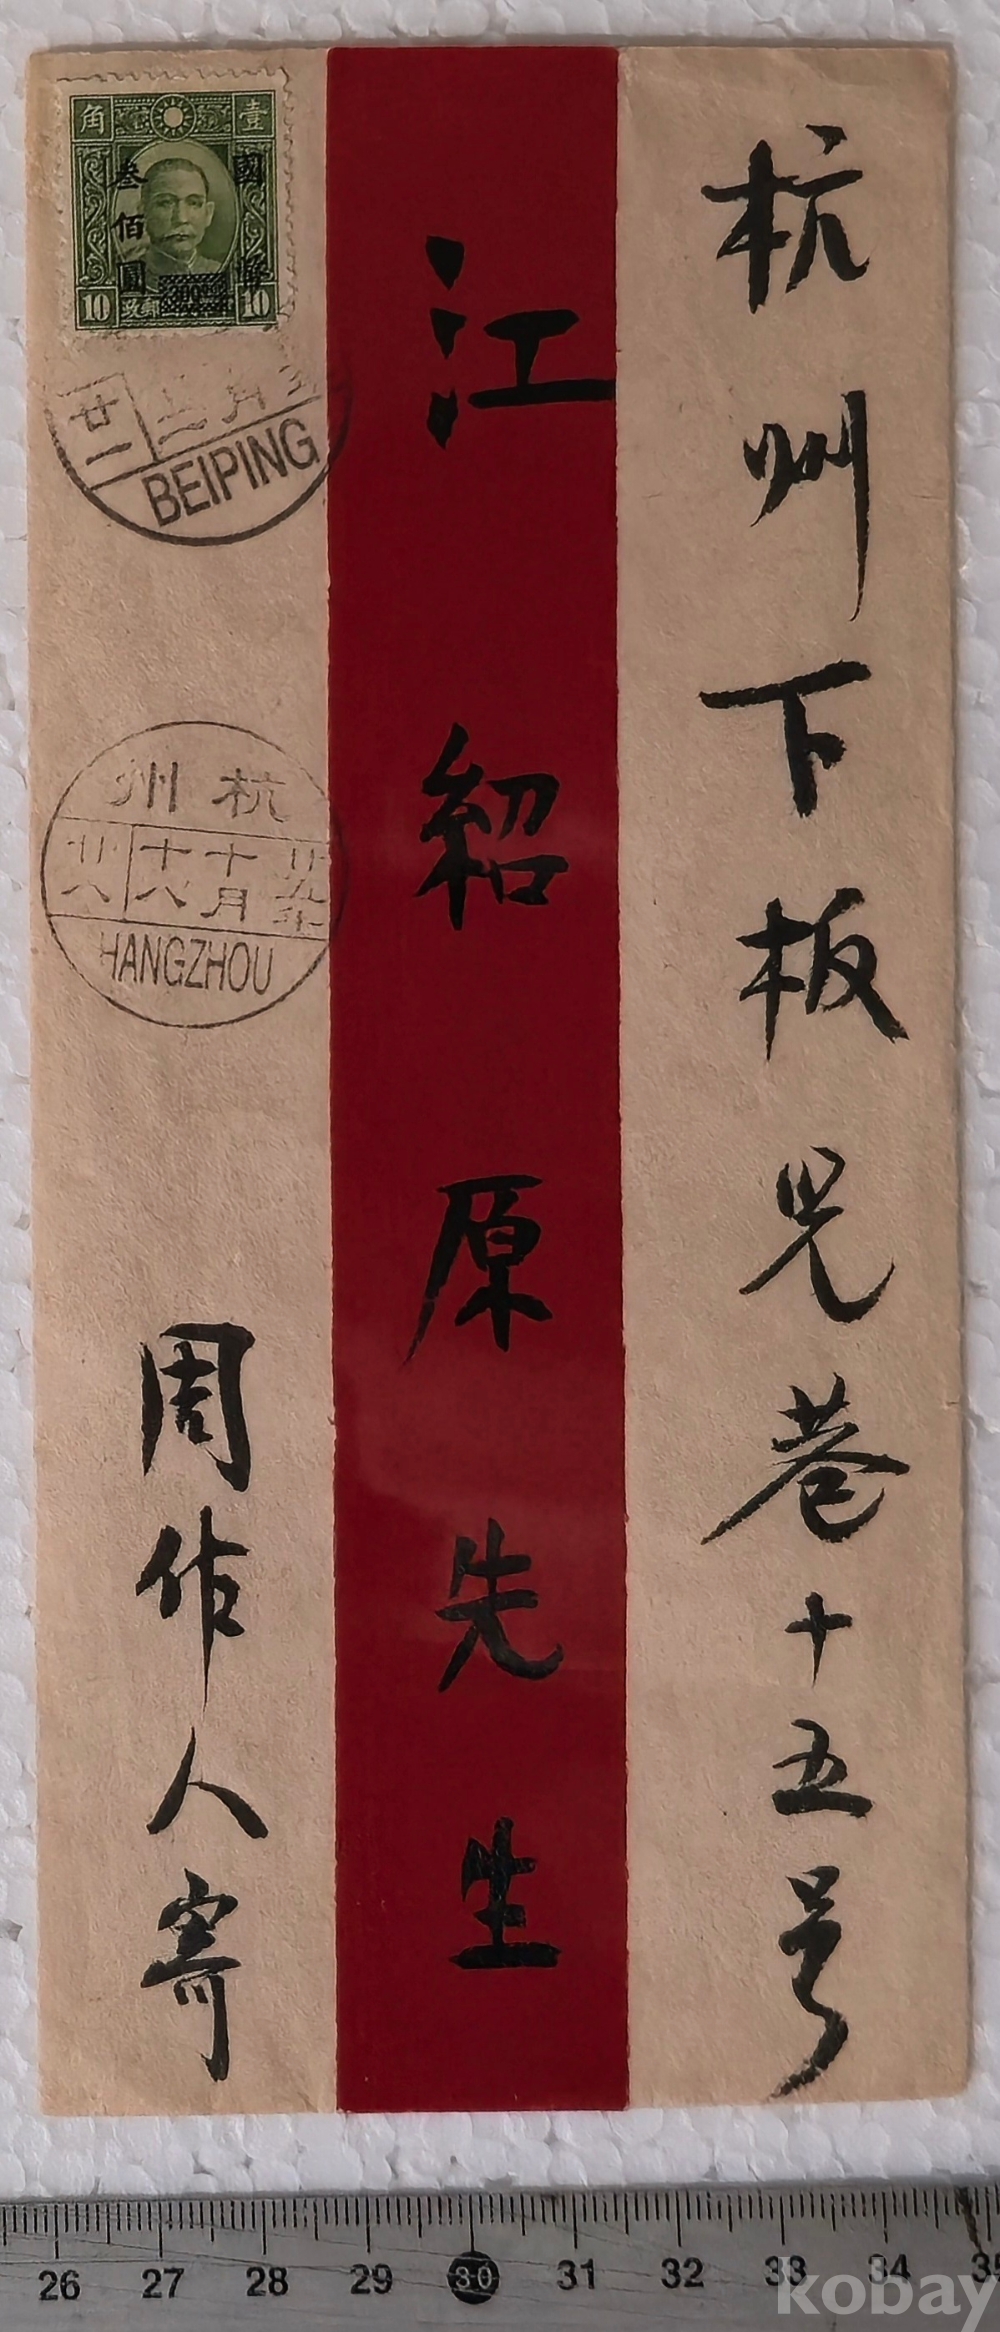 杭州下板兒巷十五号
江紹原先生
周作人寄
角 壹
國幣
叁佰圓
10 10
廿一
BEIPING
州 杭
十八 十月
HANGZHOU
26 27 28 29 30 31 32 33 34 35
kobay